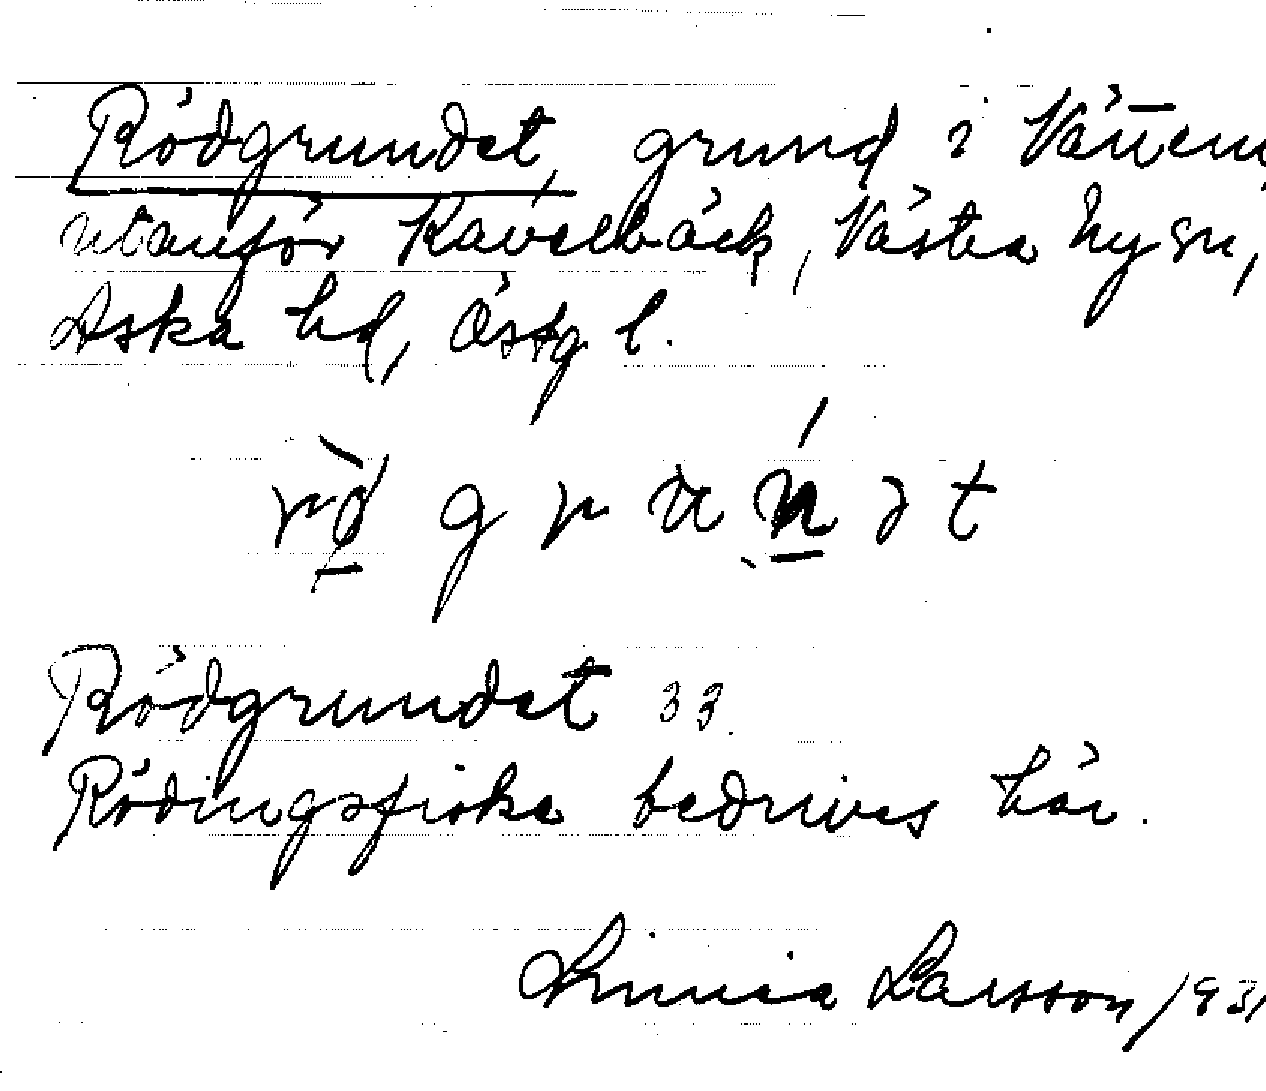 Rödgrundet, grund i Vättern,
utanför Kavelbäck, Västra Ny sn,
Aska hd, Östg l.
Rödgrundet 33
Rödingsfiske bedrives här.
Linnéa Larsson 1931